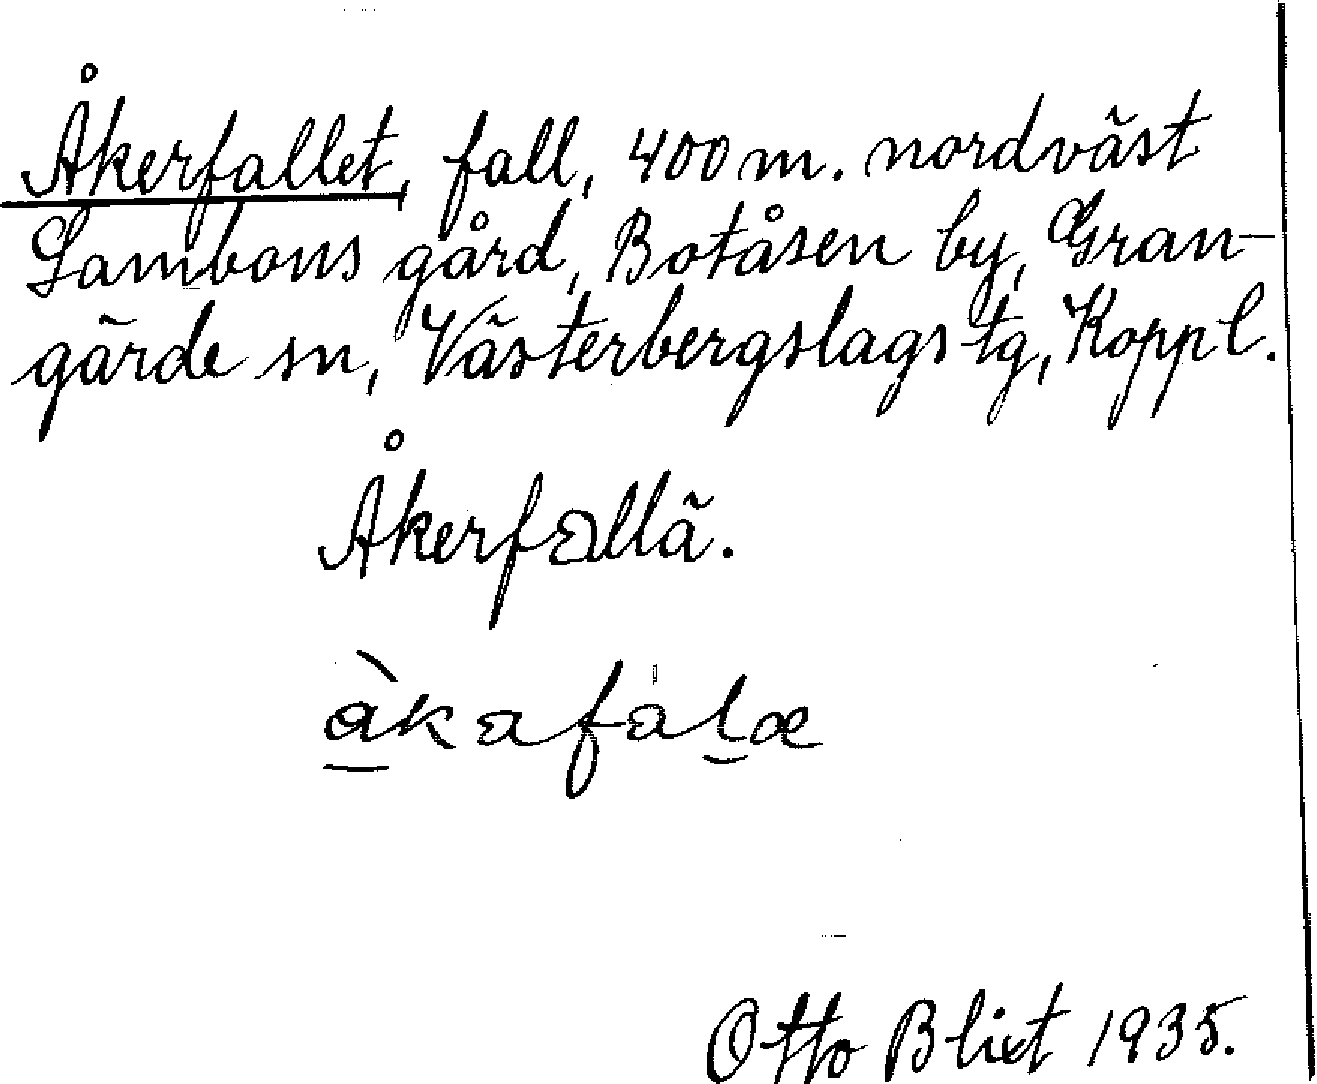 Åkerfallet, fall, 400 m. nordväst
Lambons gård, Botåsen by, Gran-
gärde sn, Västerbergslags tg, Koppl.
Åkerfallä.
àkafàlæ
Otto Blixt 1935.